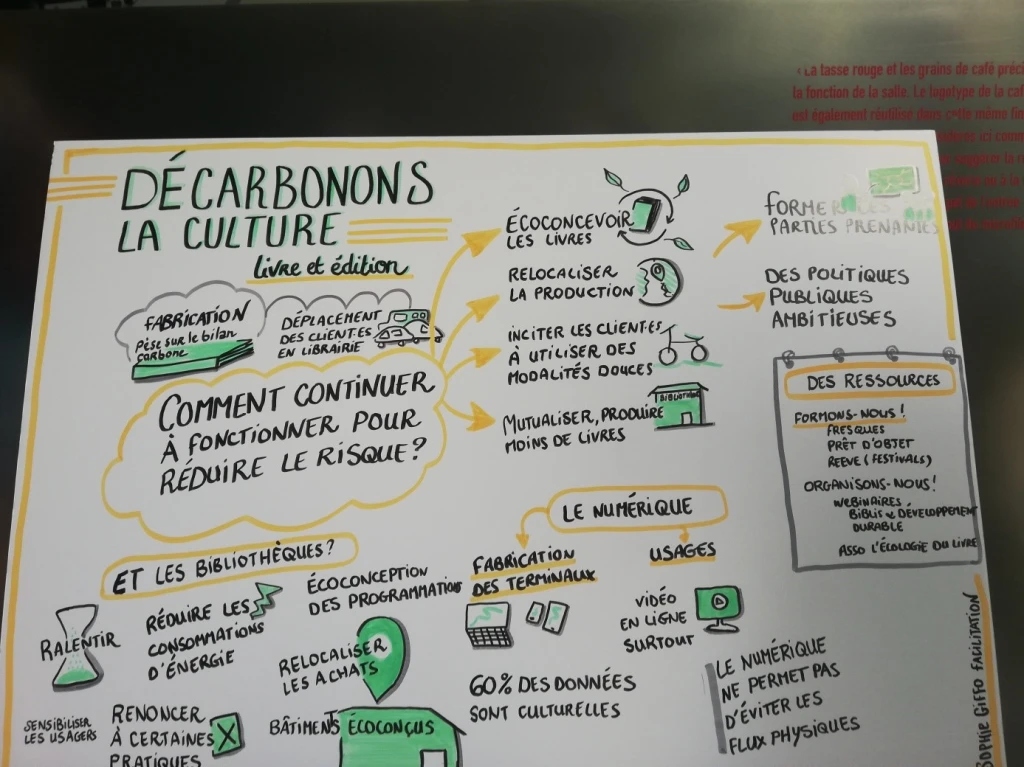 La tasse rouge et les grains de café
la fonction de la salle. Le
est également réutilisé dans cette même
DÉCARBONONS
LA CULTURE
livre et édition
FABRICATION
Pèse sur le bilan
carbone
DÉPLACEMENT
DES CLIENT·ES
EN LIBRAIRIE
COMMENT CONTINUER
À FONCTIONNER POUR
RÉDUIRE LE RISQUE?
ÉCOCONCEVOIR
LES LIVRES
RELOCALISER
LA PRODUCTION
INCITER LES CLIENT·ES
À UTILISER DES
MODALITÉS DOUCES
MUTUALISER, PRODUIRE
MOINS DE LIVRES
FORMER LES
PARTIES PRENANTES
DES POLITIQUES
PUBLIQUES
AMBITIEUSES
DES RESSOURCES
FORMONS-NOUS!
FRESQUES
PRÊT D'OBJET
REEVE (FESTIVALS)
ORGANISONS-NOUS!
WEBINAIRES
BIBLIS & DÉVELOPPEMENT
DURABLE
ASSO L'ÉCOLOGIE DU LIVRE
ET LES BIBLIOTHÈQUES?
RALENTIR
RÉDUIRE LES
CONSOMMATIONS
D'ÉNERGIE
ÉCOCONCEPTION
DES PROGRAMMATIONS
RELOCALISER
LES ACHATS
SENSIBILISER
LES USAGERS
RENONCER
À CERTAINES
PRATIQUES
BÂTIMENTS ÉCOCONÇUS
LE NUMÉRIQUE
FABRICATION
DES TERMINAUX
USAGES
VIDÉO
EN LIGNE
SURTOUT
60% DES DONNÉES
SONT CULTURELLES
LE NUMÉRIQUE
NE PERMET PAS
D'ÉVITER LES
FLUX PHYSIQUES
SOPHIE GIFFO FACILITATION